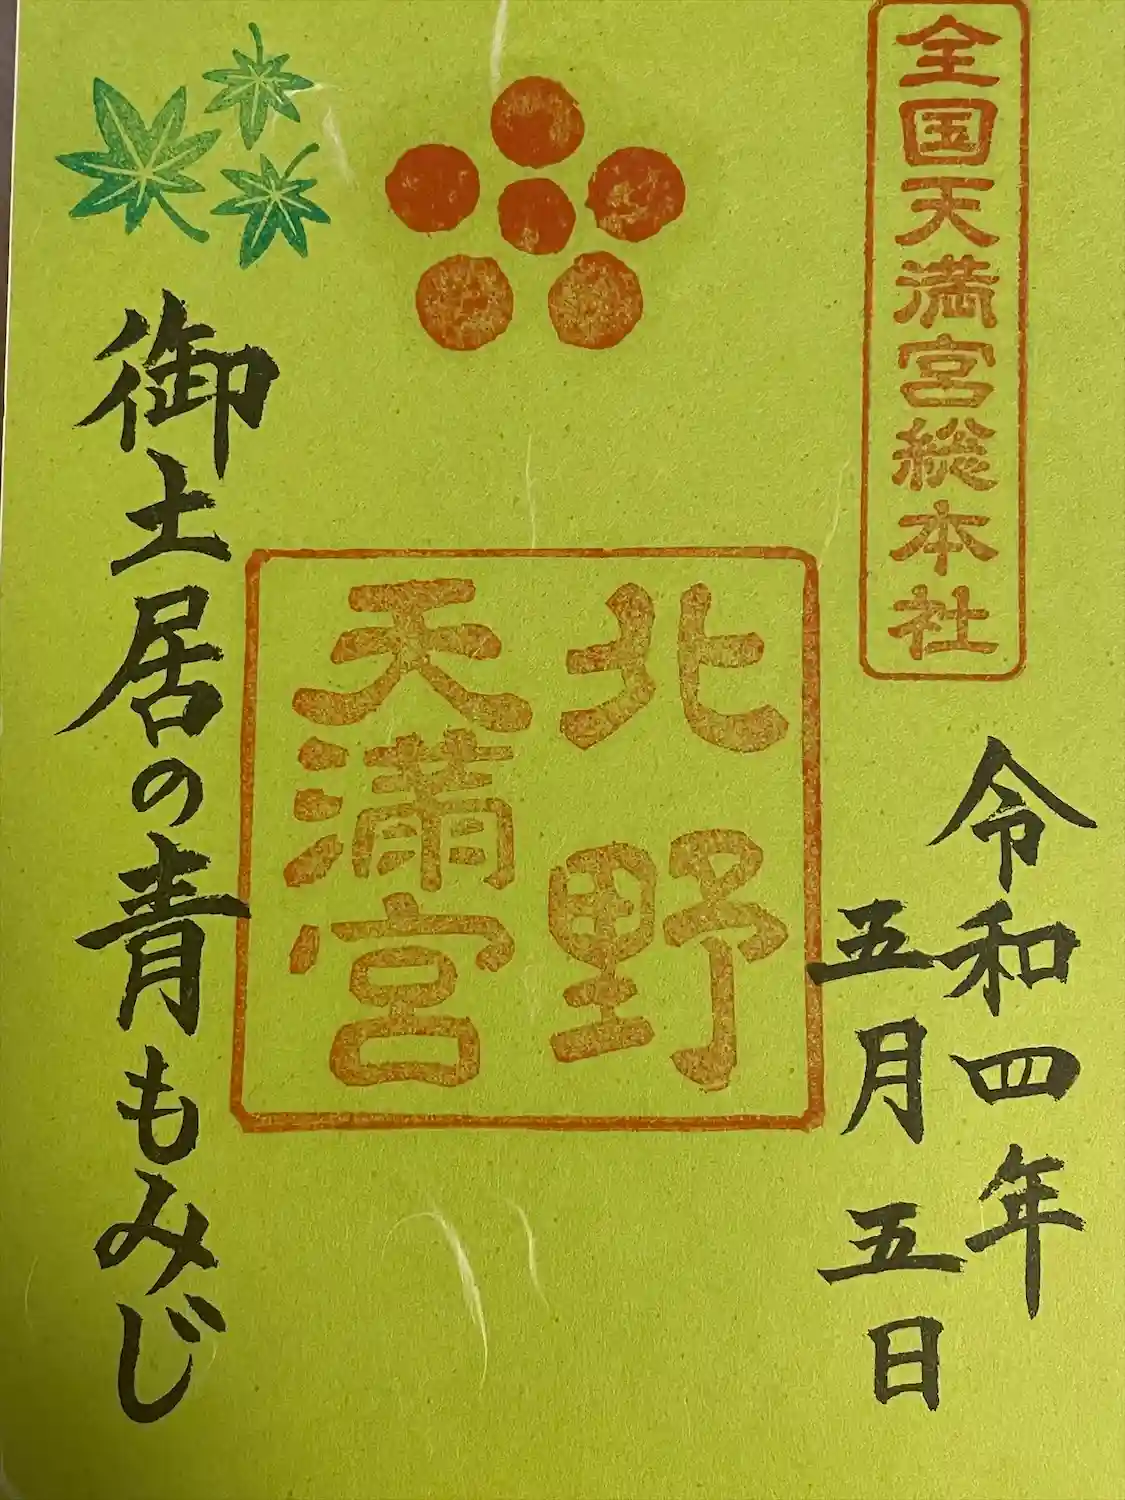 全国天満宮総本社
令和四年
五月五日
北野
天満宮
御土居の青もみじ